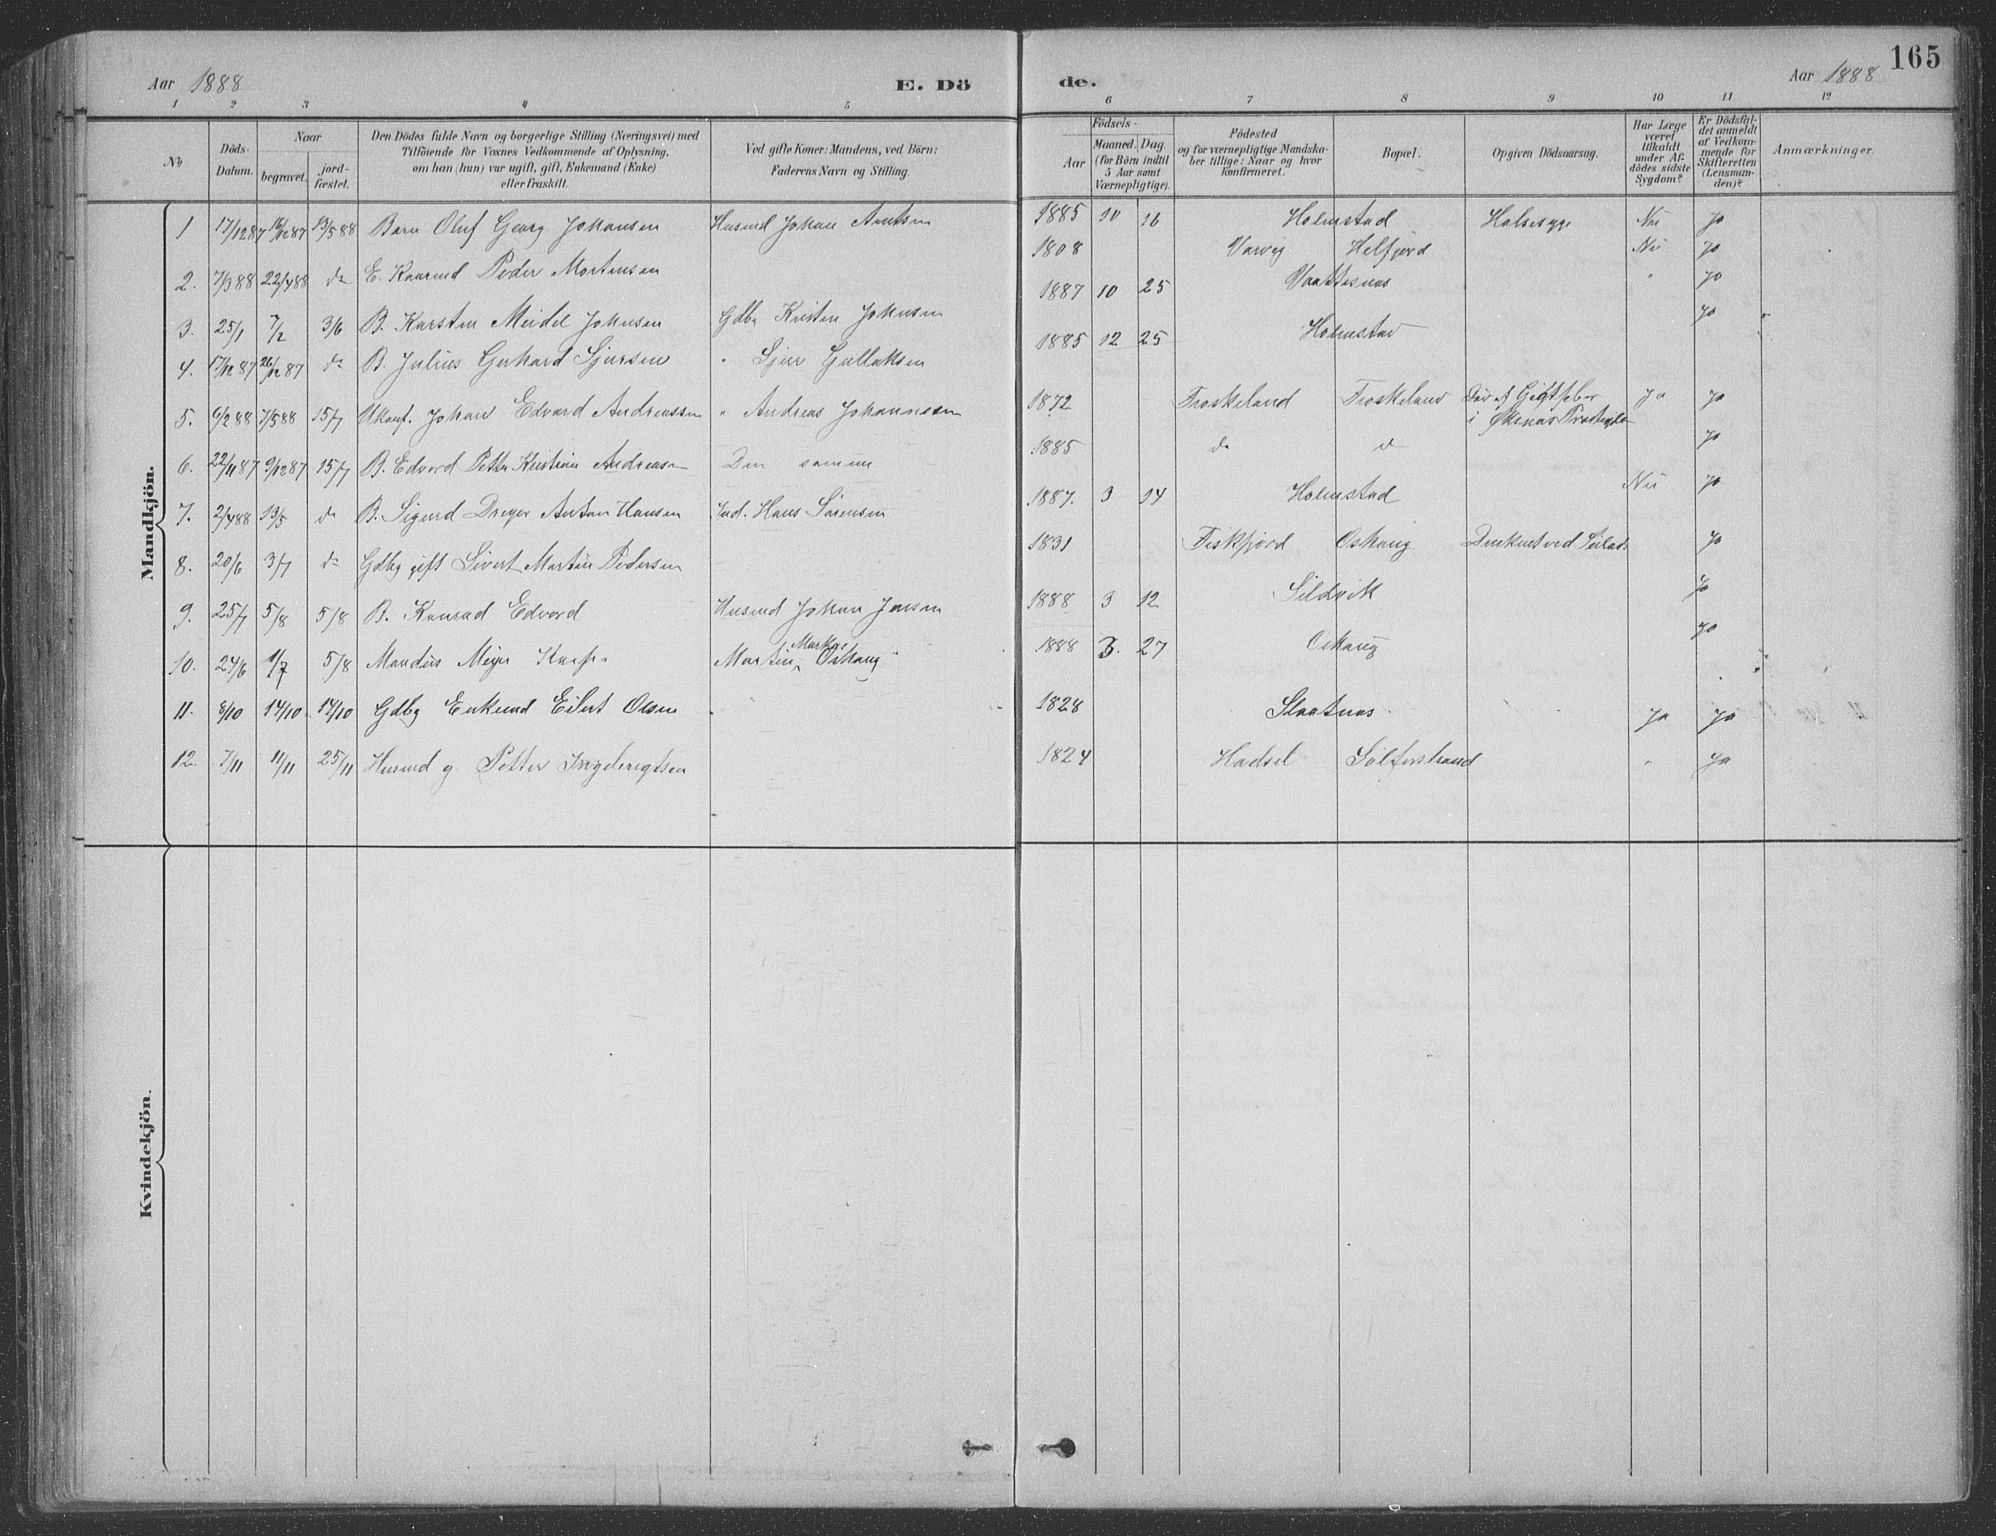 165
Aar 1888 E. Dö de. Aar 1888
1 2 3 4 5 6 7 8 9 10 11 12
No
Döds-Datum.
Naar
begravet.
jord-fæstet.
Den Dödes fulde Navn og borgerlige Stilling (Næringsvei) med
Tilföiende for Voxnes Vedkommende af Oplysning,
om han (hun) var ugift, gift, Enkemand (Enke)
eller fraskilt.
Ved gifte Koner: Mandens, ved Börn:
Faderens Navn og Stilling.
Födsels-
Aar
Maaned. Dag.
(for Börn indtil
5 Aar samt
Værnepligtige).
Födested
og for værnepligtige Mandska-
ber tillige: Naar og hvor
konfirmeret.
Bopæl.
Opgiven Dödsaarsag.
Har Læge
været
tilkaldt
under Af-
dödes sidste
Sygdom?
Er Dödsfal-
det anmeldt
af Vedkom-
mende for
Skifteretten
(Lensman-
den)?
Anmærkninger.
Mandkjön.
1 17/12 87 18/12 87 13/5 88 Barn Oluf Georg Johansen Husmd Johan Arntsen 1885 10 16 Holmstad Halssyge Nei ja
2. 7/3 88 22/4 88 do E. Kaarmd Peder Mortensen 1808 Varvig Helfjord Nei ja
3. 25/1 7/2 3/6 B. Karsten Meidel Johnsen Gdbg Kristen Johnsen 1887 10 25 Vaattesnæs " ja
4. 17/12 87 26/12 87 do B. Julius Gerhard Sjursen " Sjur Gullaksen 1885 12 25 Holmstad ja
5. 6/2 88 7/5 88 15/7 Ukonf. Johan Edvard Andreassen " Andreas Johannesen 1872 Froskeland Froskeland Död af Gigtfeber ja ja
i Øksnæs Præstegjeld
6. 22/11 87 9/12 87 15/7 B. Edvard Petter Kristian Andreasen Den samme 1885 do do ja
7. 2/4 88 13/5 do B. Sigurd Dreyer Anton Hansen Ind. Hans Sørensen 1887. 3 14 Holmstad Nei ja
8. 20/6 3/7 do Gdbg gift Sivert Martin Pedersen 1831 Fiskfjord Oshaug Druknet ved Seilads ja
9. 25/7 5/8 5/8 B. Konrad Edvard Husmd Johan Jensen 1888 3 12 Sildvik ja
10. 24/6 1/7 5/8 Mandius Meyer Martin Markus Oshaug 1888 3. 27 Oshaug ja
11. 8/10 14/10 14/10 Gdbg Enkemd Eilert Olsen 1828 Slaatnæs ja ja
12. 7/11 11/11 25/11 Husmd g. Petter Ingebrigtsen 1824 Hadsel Sølferstrand " ja
Kvindekjön.